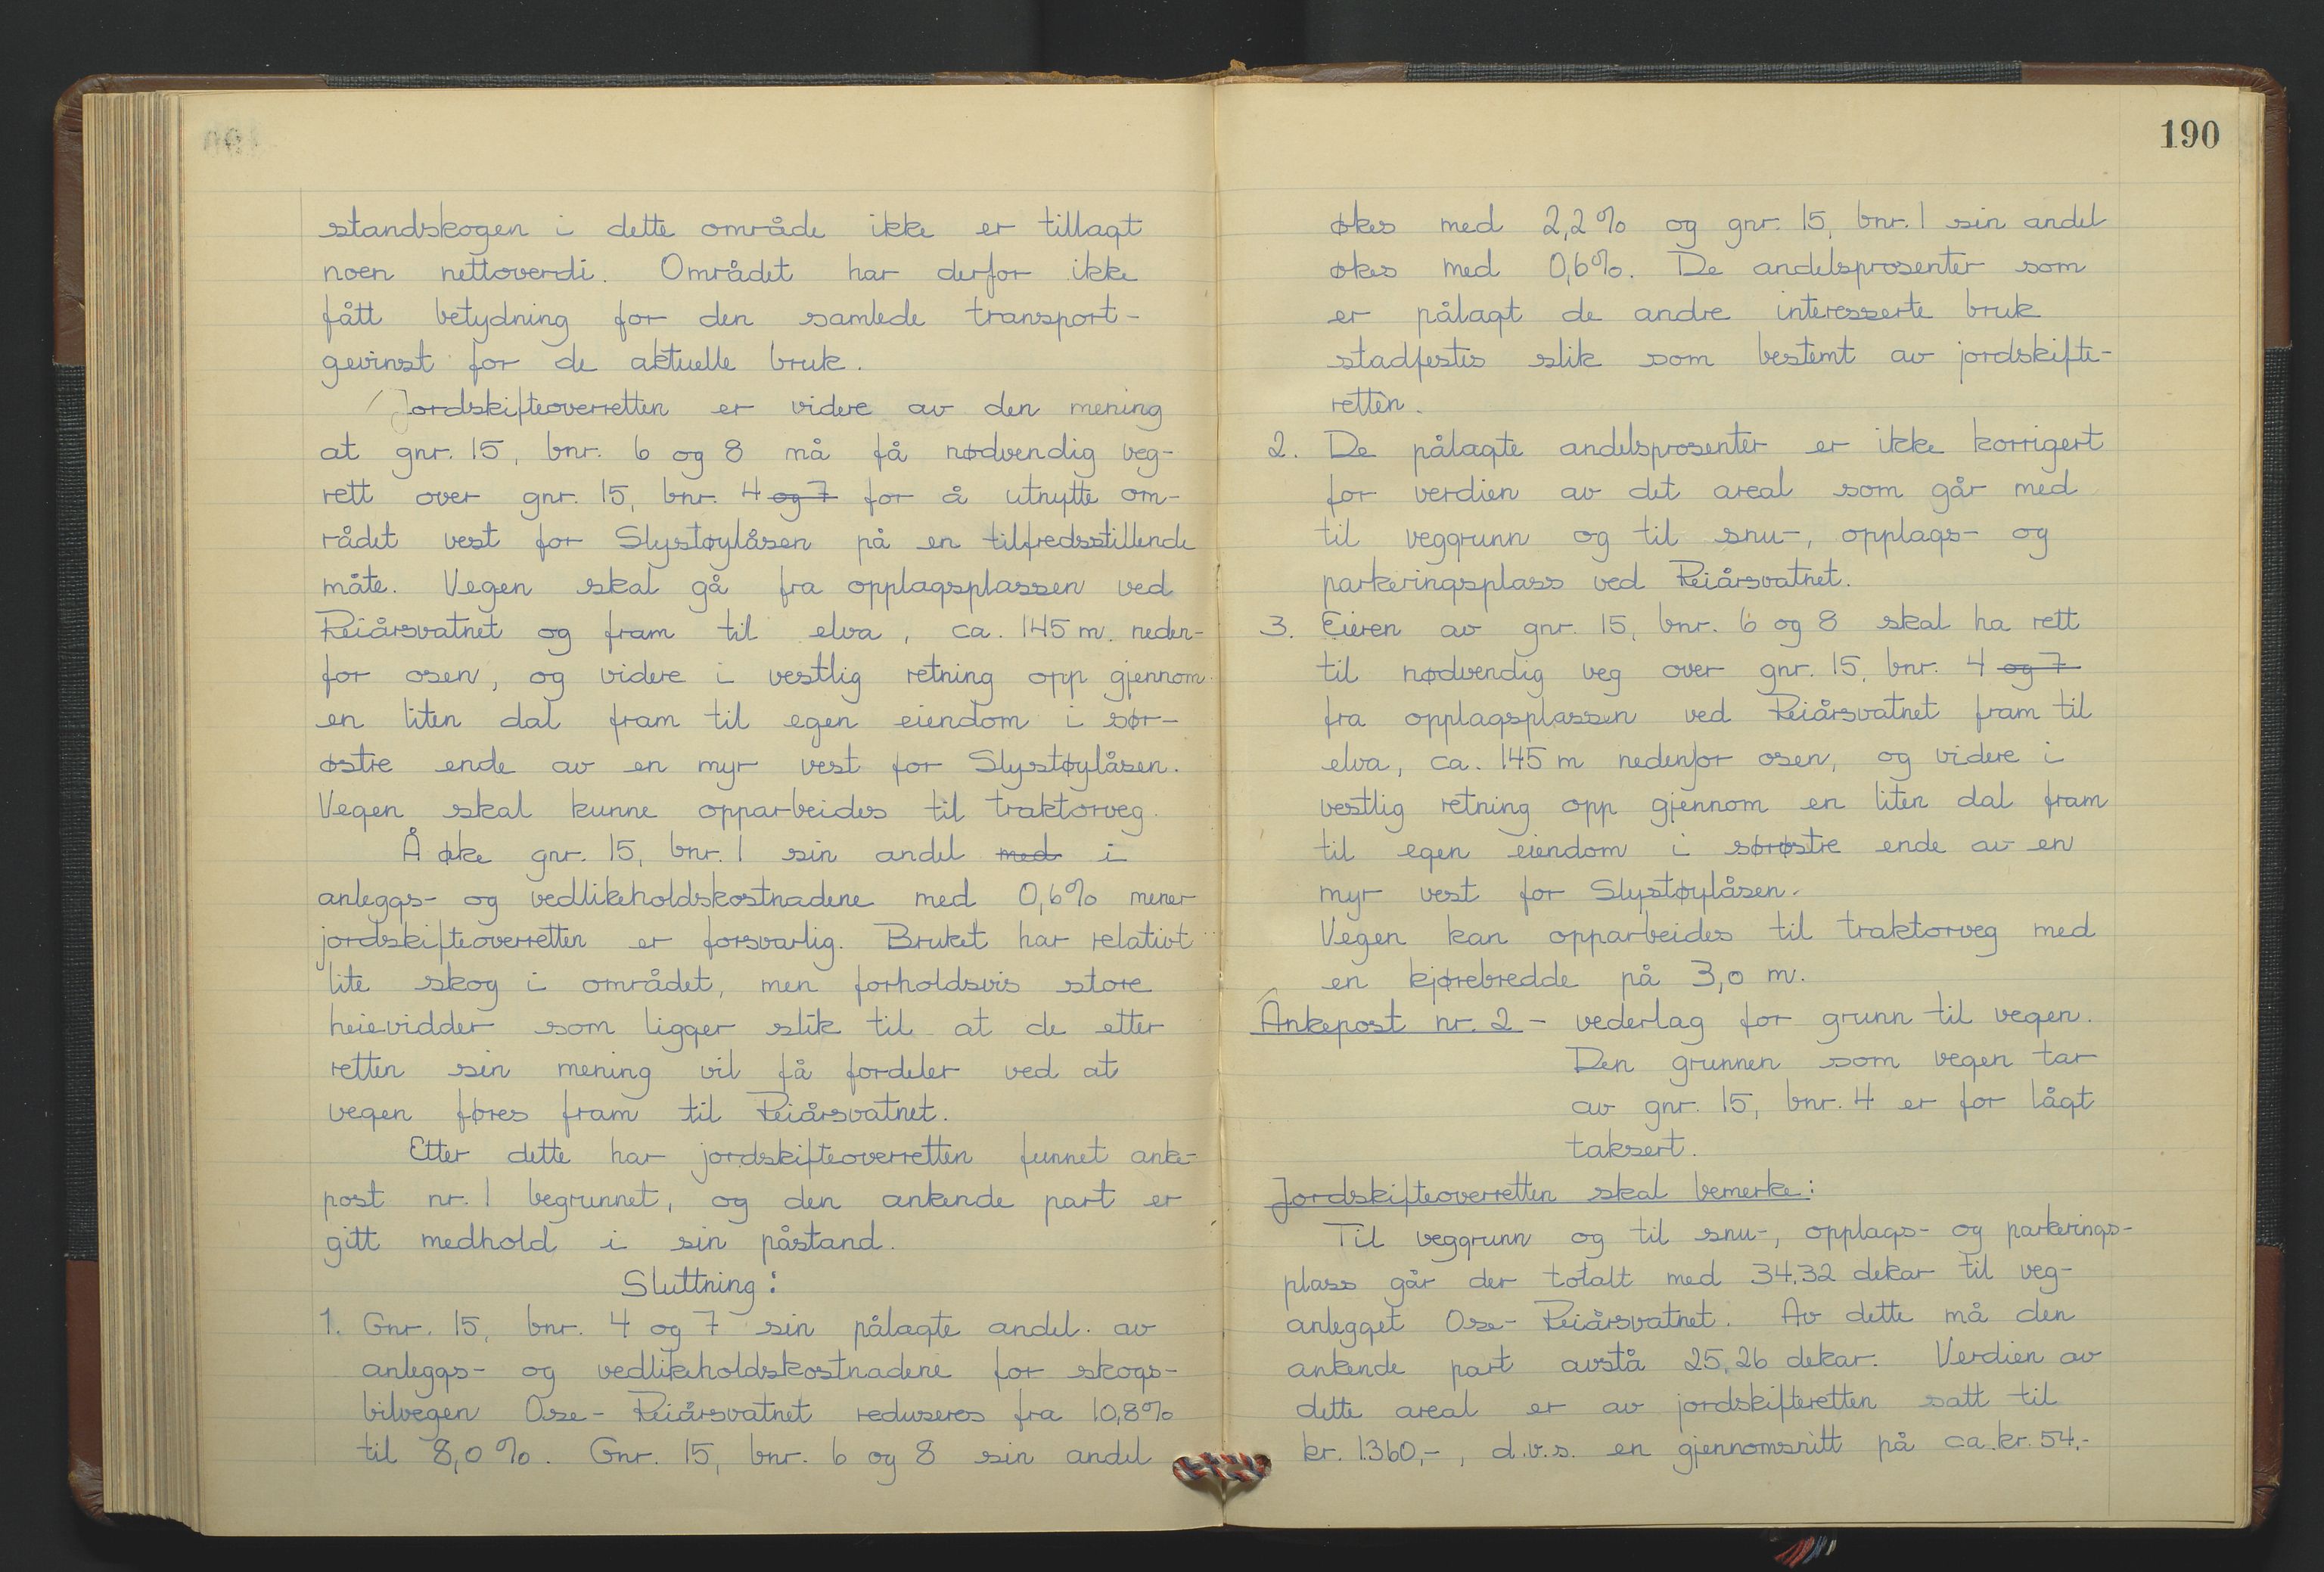 standskogen i dette område ikke er tillagt
noen nettoverdi. Området har derfor ikke
fått betydning for den samlede transport-
gevinst for de aktuelle bruk.
Jordskifteoverretten er videre av den mening
at gnr. 15, bnr. 6 og 8 må få nødvendig veg-
rett over gnr. 15, bnr. 4 og 7 for å utnytte om-
rådet vest for Slystøylåsen på en tilfredsstillende
måte. Vegen skal gå fra opplagsplassen ved
Reiårsvatnet og fram til elva, ca. 145 m. neden-
for osen, og videre i vestlig retning opp gjennom
en liten dal fram til egen eiendom i sør-
østre ende av en myr vest for Slystøylåsen.
Vegen skal kunne opparbeides til traktorveg.
Å øke gnr. 15, bnr. 1 sin andel med i
anleggs- og vedlikeholdskostnadene med 0,6% mener
jordskifteoverretten er forsvarlig. Bruket har relativt
lite skog i området, men forholdsvis store
heievidder som ligger slik til at de etter
retten sin mening vil få fordeler ved at
vegen føres fram til Reiårsvatnet.
Etter dette har jordskifteoverretten funnet anke-
post nr. 1 begrunnet, og den ankende part er
gitt medhold i sin påstand.
Sluttning:
1. Gnr. 15, bnr. 4 og 7 sin pålagte andel av
anleggs- og vedlikeholdskostnadene for skogs-
bilvegen Ose- Reiårsvatnet reduseres fra 10,8%
til 8,0%. Gnr. 15, bnr. 6 og 8 sin andel
190
økes med 2,2% og gnr. 15, bnr. 1 sin andel
økes med 0,6%. De andelsprosenter som
er pålagt de andre interesserte bruk
stadfestes slik som bestemt av jordskifte-
retten.
2. De pålagte andelsprosenter er ikke korrigert
for verdien av det areal som går med
til veggrunn og til snu-, opplags- og
parkeringsplass ved Reiårsvatnet.
3. Eieren av gnr. 15, bnr. 6 og 8 skal ha rett
til nødvendig veg over gnr. 15, bnr. 4 og 7
fra opplagsplassen ved Reiårsvatnet fram til
elva, ca. 145 m nedenfor osen, og videre i
vestlig retning opp gjennom en liten dal fram
til egen eiendom i sørøstre ende av en
myr vest for Slystøylåsen.
Vegen kan opparbeides til traktorveg med
en kjørebredde på 3,0 m.
Ankepost nr. 2 - vederlag for grunn til vegen.
Den grunnen som vegen tar
av gnr. 15, bnr. 4 er for lågt
taksert.
Jordskifteoverretten skal bemerke:
Til veggrunn og til snu-, opplags- og parkerings-
plass går der totalt med 34.32 dekar til veg-
anlegget Ose- Reiårsvatnet. Av dette må den
ankende part avstå 25.26 dekar. Verdien av
dette areal er av jordskifteretten satt til
kr. 1.360,-, d.v.s. en gjennomsnitt på ca. kr. 54,-